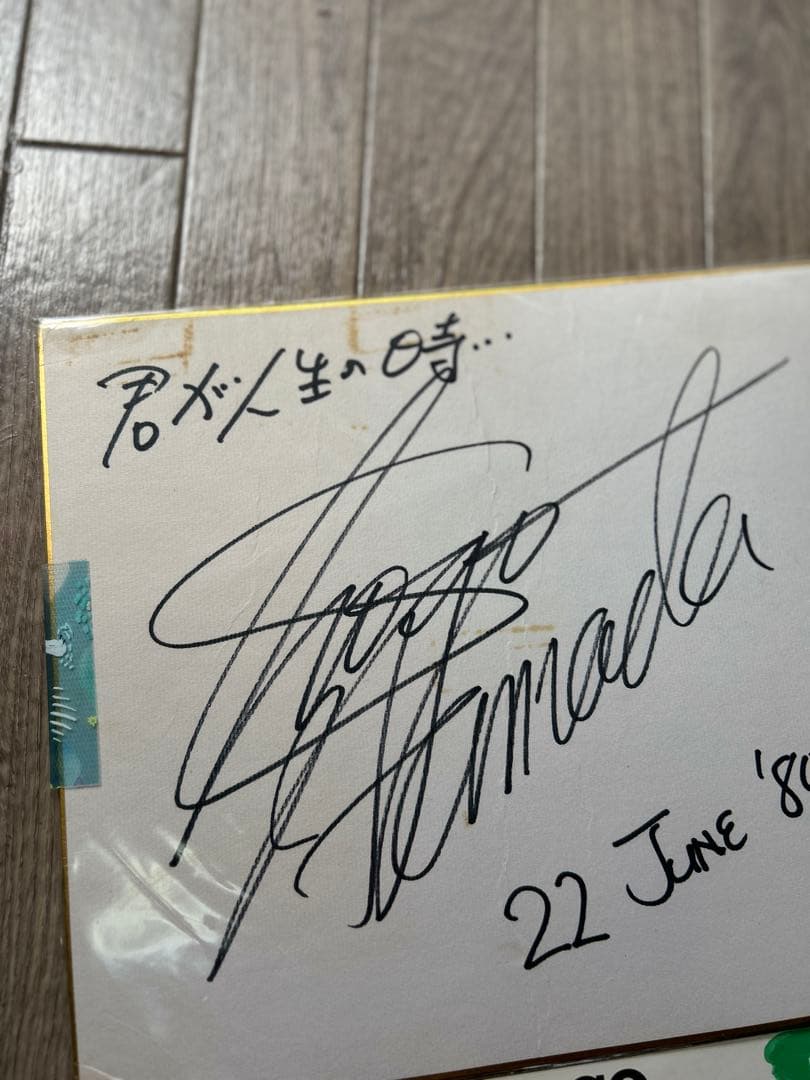 君が人生の時…
Shogo
Hamada
22 JUNE '80